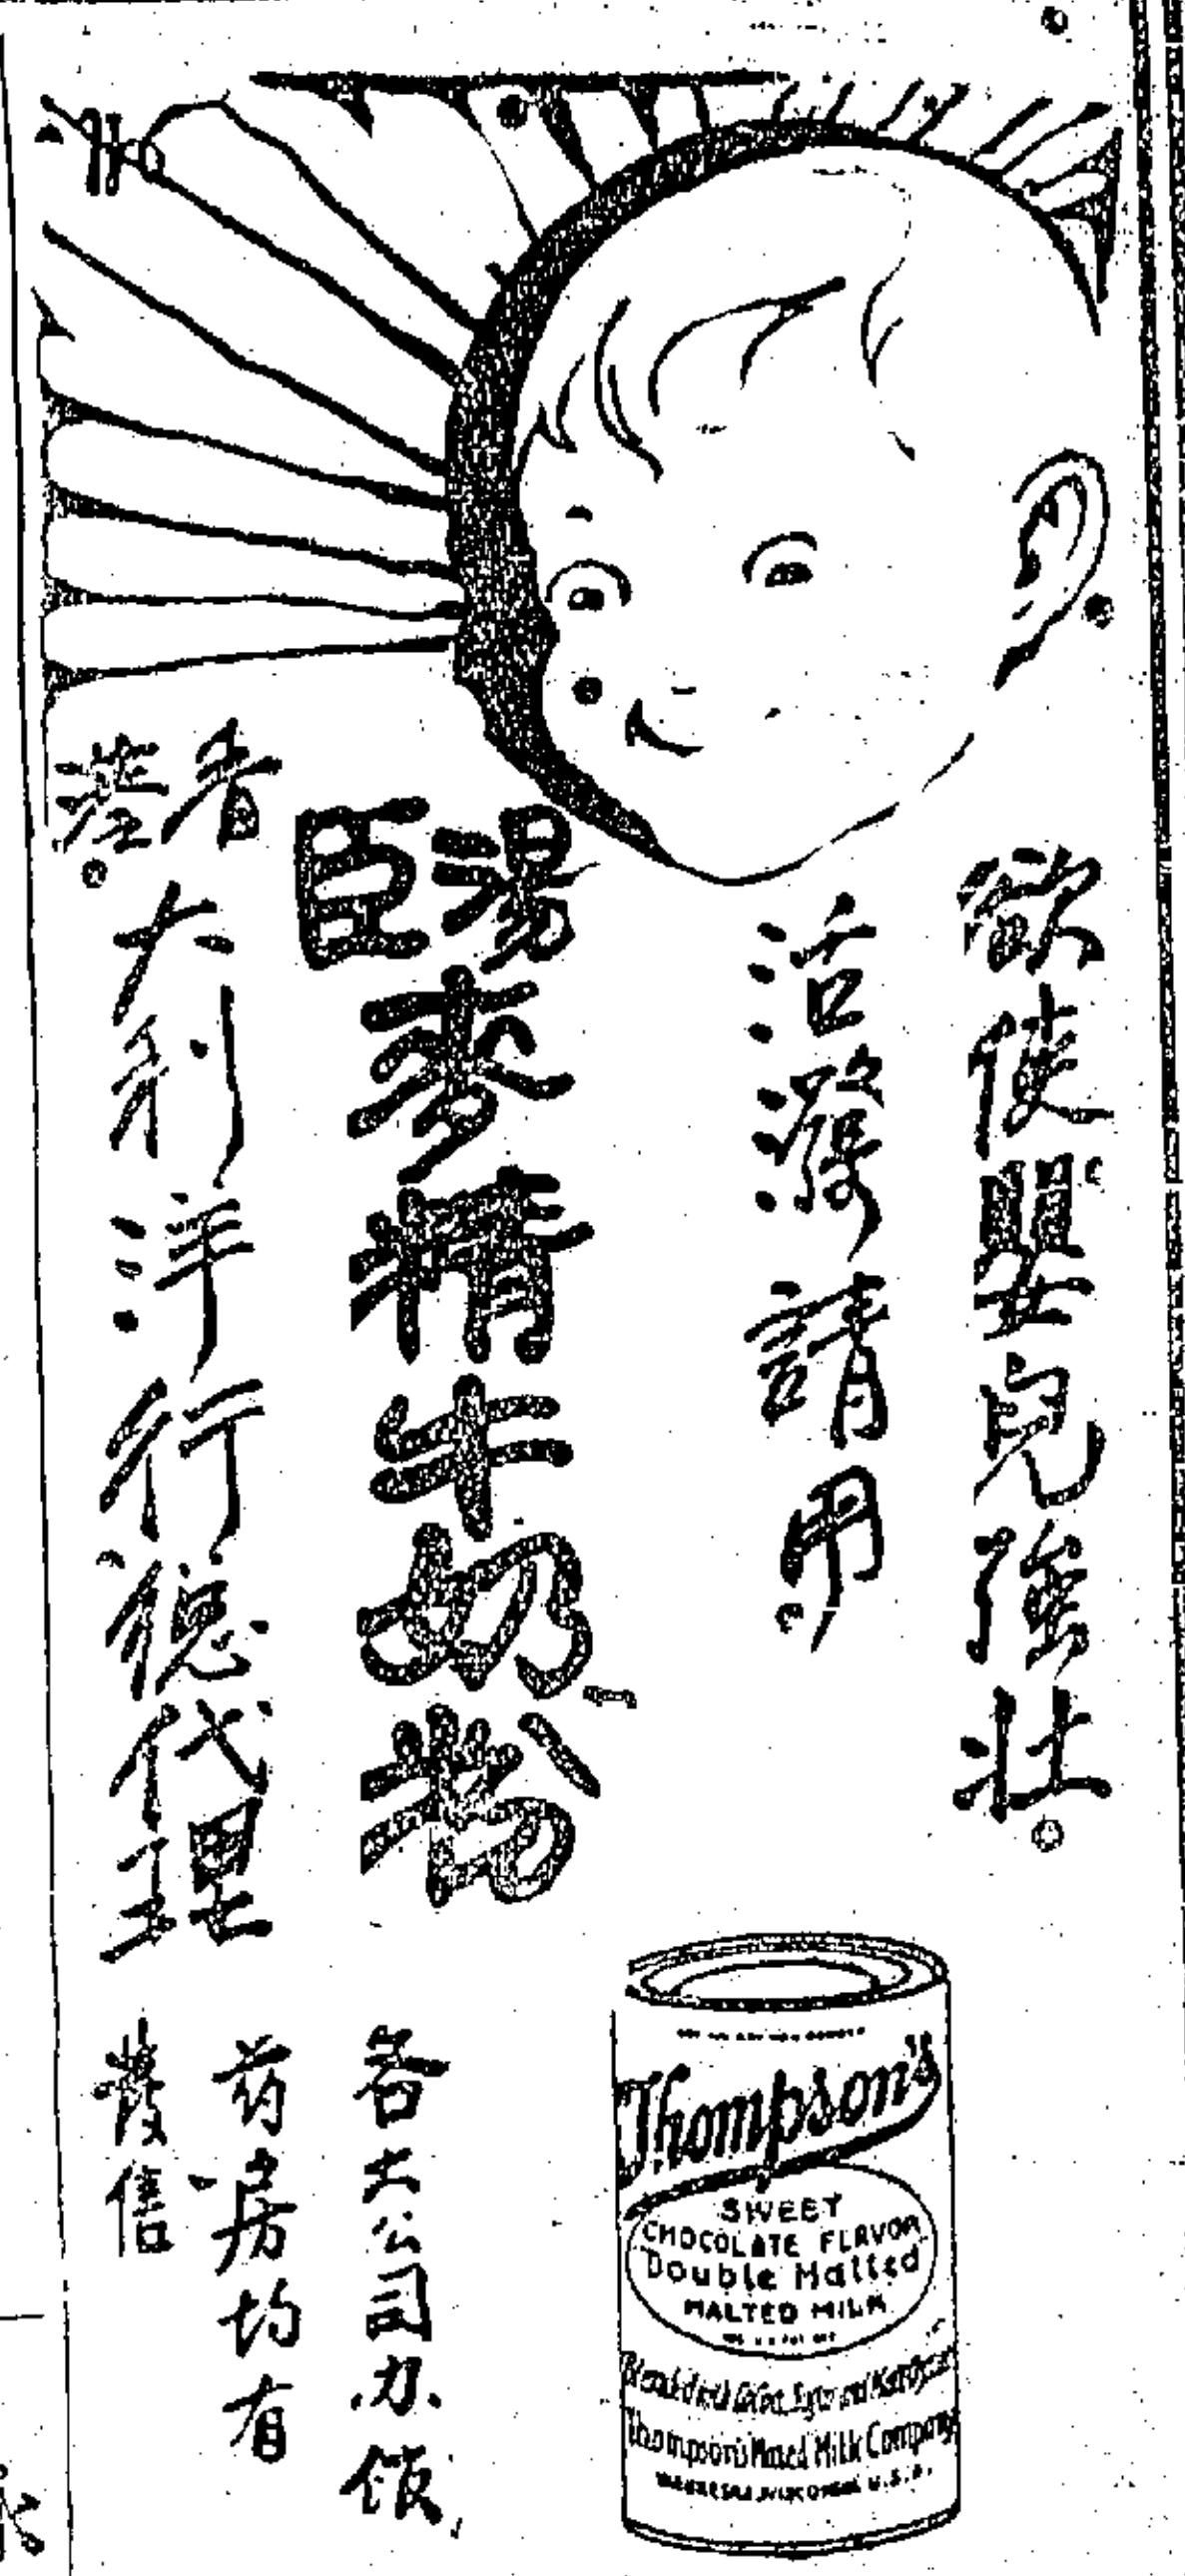 欲使嬰兒強壯。
活潑請用
湯臣
麥精牛奶粉
香港。
大利洋行總代理
各大公司办馆
药房均有
發售
Thompson's
SWEET
CHOCOLATE FLAVOR
Double Malted
MALTED MILK
Thompson's Malted Milk Company
WAUKESHA, WISCONSIN U.S.A.